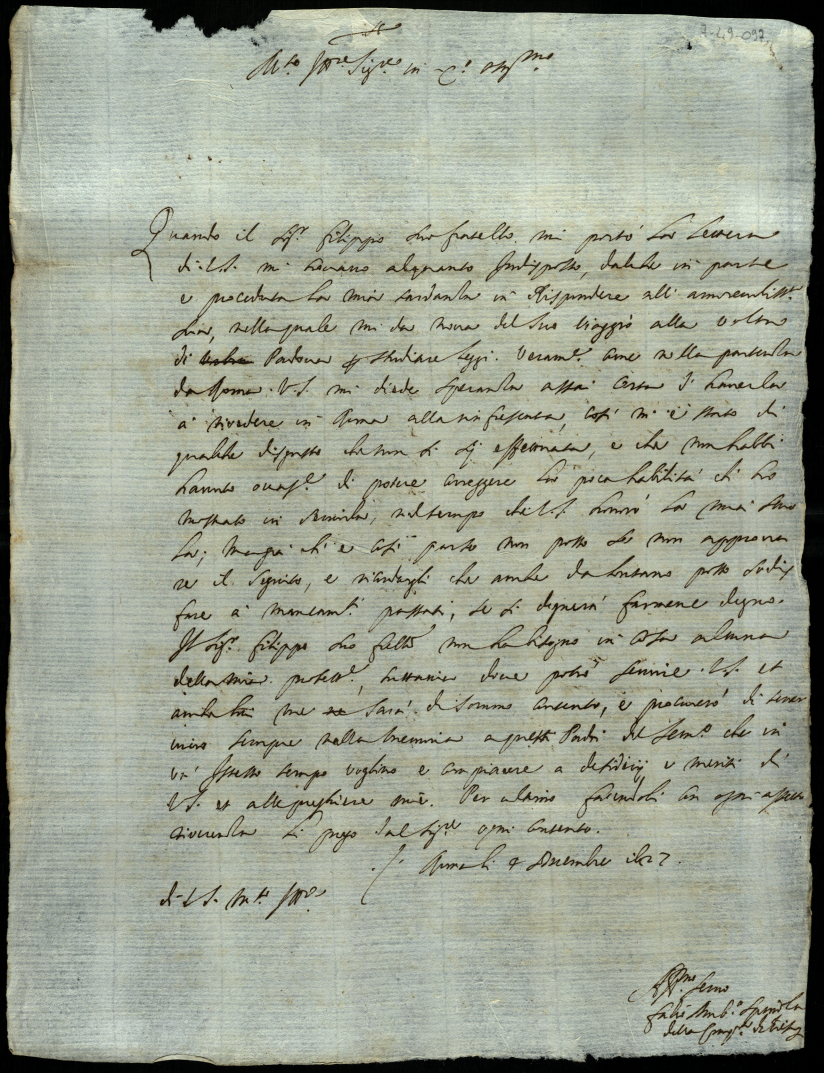 7-49-097
Quando il Sig.r Filippo suo fratello mi portò la lettera
di V.S. mi trovavo alquanto Indisposto, dal che in parte
è proceduta la mia tardanza in Rispondere all' amorevoliss.a
sua, nella quale mi da nova del suo viaggio alla volta
di Padova studiare leggi. Veram.te nella partenza
da Roma V.S. mi diede speranza assai certa d' haverla
a rivedere in Roma alla rinfrescata, così mi è stato di
qualche disgusto che non si sij effettuata, e che non habbi
havuto di potere correggere la poca habilità ch' ho
mostrato in servirla, nel tempo che V.S. honorò la mia
ma già ch' è così non posso se non approva
re il seguito, e ricordargli che anche da lontano posso sodis
fare a mancam.ti passati, se si degnerà farmene degno.
Il Sig.r Filippo suo non ha bisogno in cosa alcuna
della mia dove potrò servire V.S. et
me sarà di sommo contento, e procurerò di tener
vivo sempre nella memoria a questi Padri del Sem.o che in
un' Istesso tempo voglino compiacere a desiderij e meriti di
V.S. et alle preghiere mie. Per ultimo facendoli con ogni affetto
riverenza li prego dal Sig.re ogni contento.
Roma li 4 Decembre 1627.
di V.S. M.to Ill.re
Aff.mo Servo
Spinola
della Comp.a di Giesù